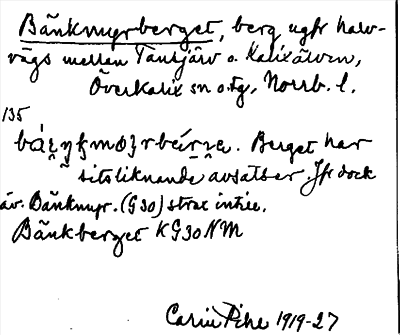 Bänkmyrberget, berg ugfr halv-
vägs mellan Täntjärv o. Kalixälven,
Överkalix sn o. tg, Norrb. l.
135
Berget har
sitsliknande avsatser. Jfr dock
äv. Bänkmyr. (G30) strax intill.
Bänkberget KG30NM
Carin Pihl 1919-27